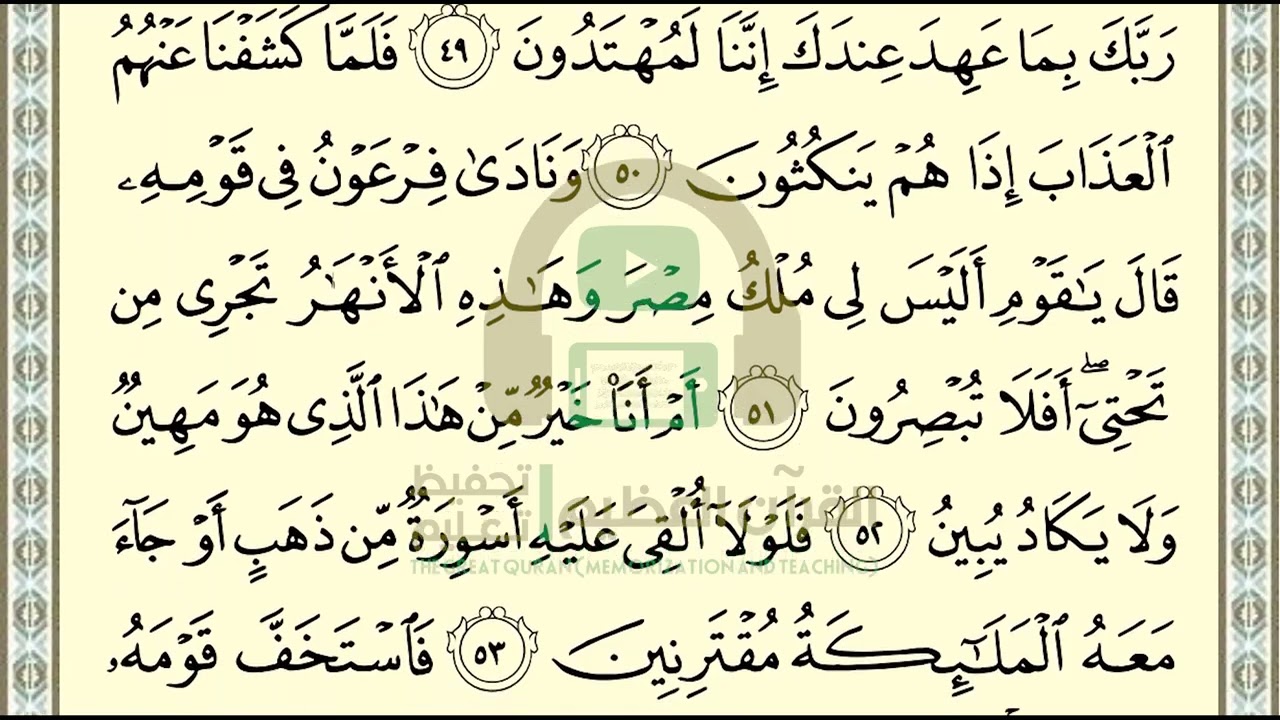 رَبَّكَ بِمَا عَهِدَ عِندَكَ إِنَّنَا لَمُهۡتَدُونَ ٤٩ فَلَمَّا كَشَفۡنَا عَنۡهُمُ
ٱلۡعَذَابَ إِذَا هُمۡ يَنكُثُونَ ٥٠ وَنَادَىٰ فِرۡعَوۡنُ فِي قَوۡمِهِۦ
قَالَ يَٰقَوۡمِ أَلَيۡسَ لِي مُلۡكُ مِصۡرَ وَهَٰذِهِ ٱلۡأَنۡهَٰرُ تَجۡرِي مِن
تَحۡتِيٓۖ أَفَلَا تُبۡصِرُونَ ٥١ أَمۡ أَنَا۠ خَيۡرٞ مِّنۡ هَٰذَا ٱلَّذِي هُوَ مَهِينٞ
وَلَا يَكَادُ يُبِينُ ٥٢ فَلَوۡلَآ أُلۡقِيَ عَلَيۡهِ أَسۡوِرَةٞ مِّن ذَهَبٍ أَوۡ جَآءَ
مَعَهُ ٱلۡمَلَٰٓئِكَةُ مُقۡتَرِنِينَ ٥٣ فَٱسۡتَخَفَّ قَوۡمَهُۥ
القرآن العظيم
تحفيظ
تعليم
THE GREAT QURAN (MEMORIZATION AND TEACHING)